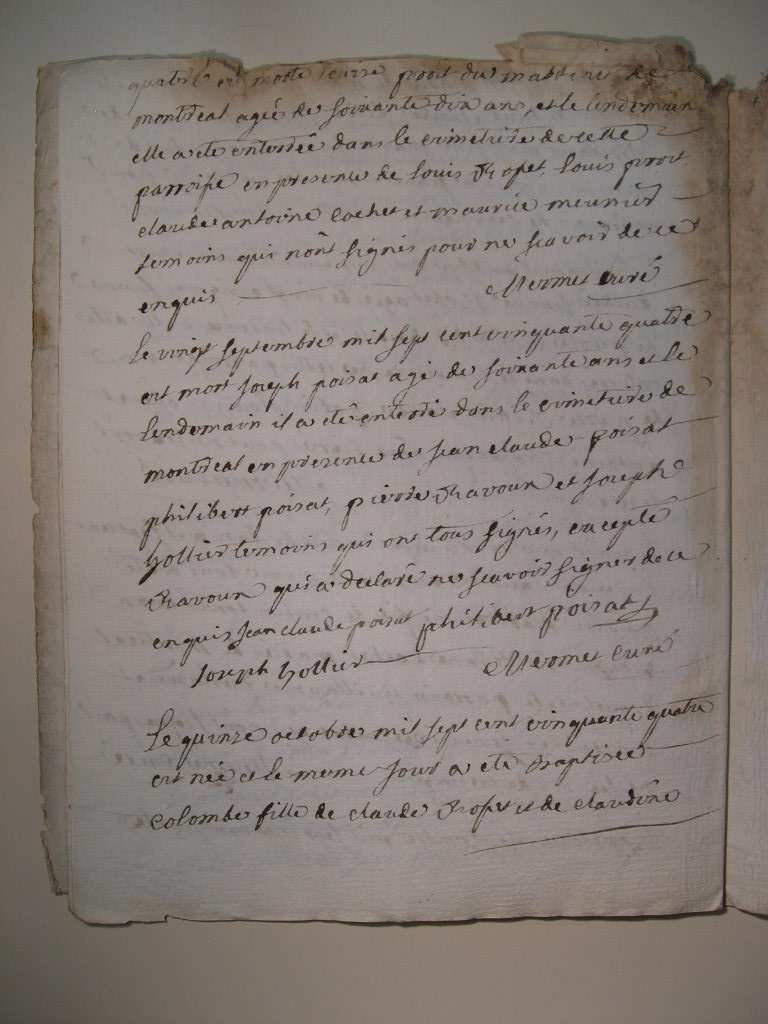 quatre est morte Louise proit du masteret de
montreal agée de soixante dix ans, et le lendemain
elle a été enterrée dans le cimetiere de cette
parroisse en presence de louis Ropet. louis proit
claude antoine cochet et maurice meunier
temoins qui n'ont signés pour ne scavoir de ce
enquis Mermet curé
Le vingt septembre mil sept cent cinquante quatre
est mort joseph poisat agé de soixante ans et le
lendemain il a été enterré dans le cimetiere de
montreal en presence de jean claude poisat
philibert poisat, pierre Ravoux et joseph
hollier temoins qui ont tous signés, excepté
Ravoux qui a declaré ne scavoir signer de ce
enquis jean claude poisat philibert poisat
joseph hollier Mermet curé
Le quinze octobre mil sept cent cinquante quatre
est née et le meme jour a été Baptisée
Colombe fille de claude Ropet et de claudine